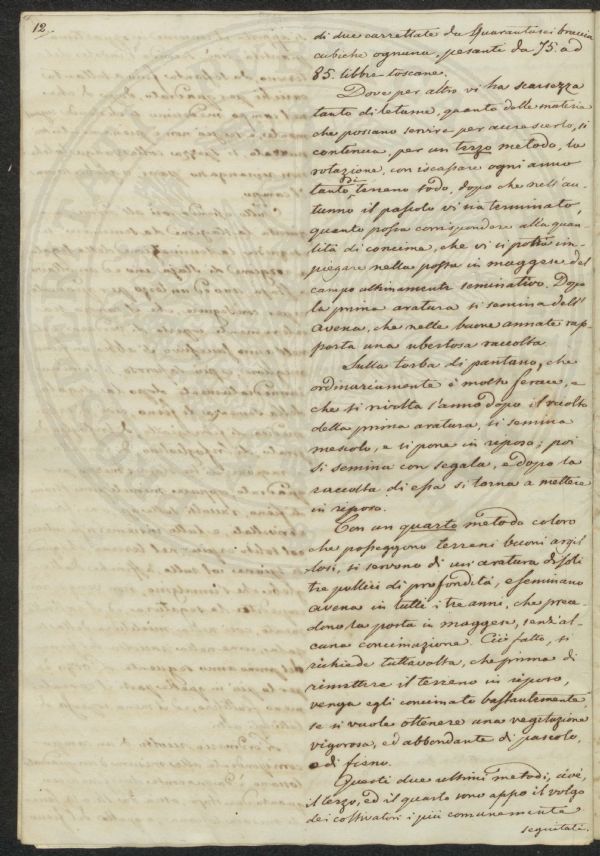 12.
di due carrettate da Quarantasei braccia
cubiche ognuna, pesanti da 75. ad
85. libbre toscane.
Dove per altro vi ha scarsezza
tanto di letame, quanto delle materie
che possano servire per accrescerlo, si
continua, per un terzo metodo, la
rotazione, con iscassare ogni anno
tanto di terreno sodo, dopo che nell'au-
tunno il pascolo vi sia terminato,
quanto possa corrispondere alla quan-
tità di concime, che vi si potrà im-
piegare nella possa in maggese del
campo ultimamente seminativo. Dopo
la prima aratura si semina dell'
avena, che nelle buone annate rap-
porta una ubertosa raccolta.
Sulla torba di pantano, che
ordinariamente è molto ferace, e
che si rivolta l'anno dopo il raccolto
della prima aratura, si semina
mescolo, e si pone in riposo; poi
si semina con segala, e dopo la
raccolta di essa si torna a mettere
in riposo.
Con un quarto metodo coloro
che posseggono terreni buoni argil-
losi, si servono di un'aratura di soli
tre pollici di profondità, e seminano
avena in tutti i tre anni, che prece-
dono la posta in maggese, senz'al-
cuna concimazione. Ciò fatto, si
richiede tuttavolta, che prima di
rimettere il terreno in riposo,
venga egli concimato bastantemente,
se si vuole ottenere una vegetazione
vigorosa, ed abbondante di pascolo,
e di fieno.
Questi due ultimi metodi, cioè,
il terzo, ed il quarto sono appo il volgo
dei coltivatori i più comunemente
seguitati.